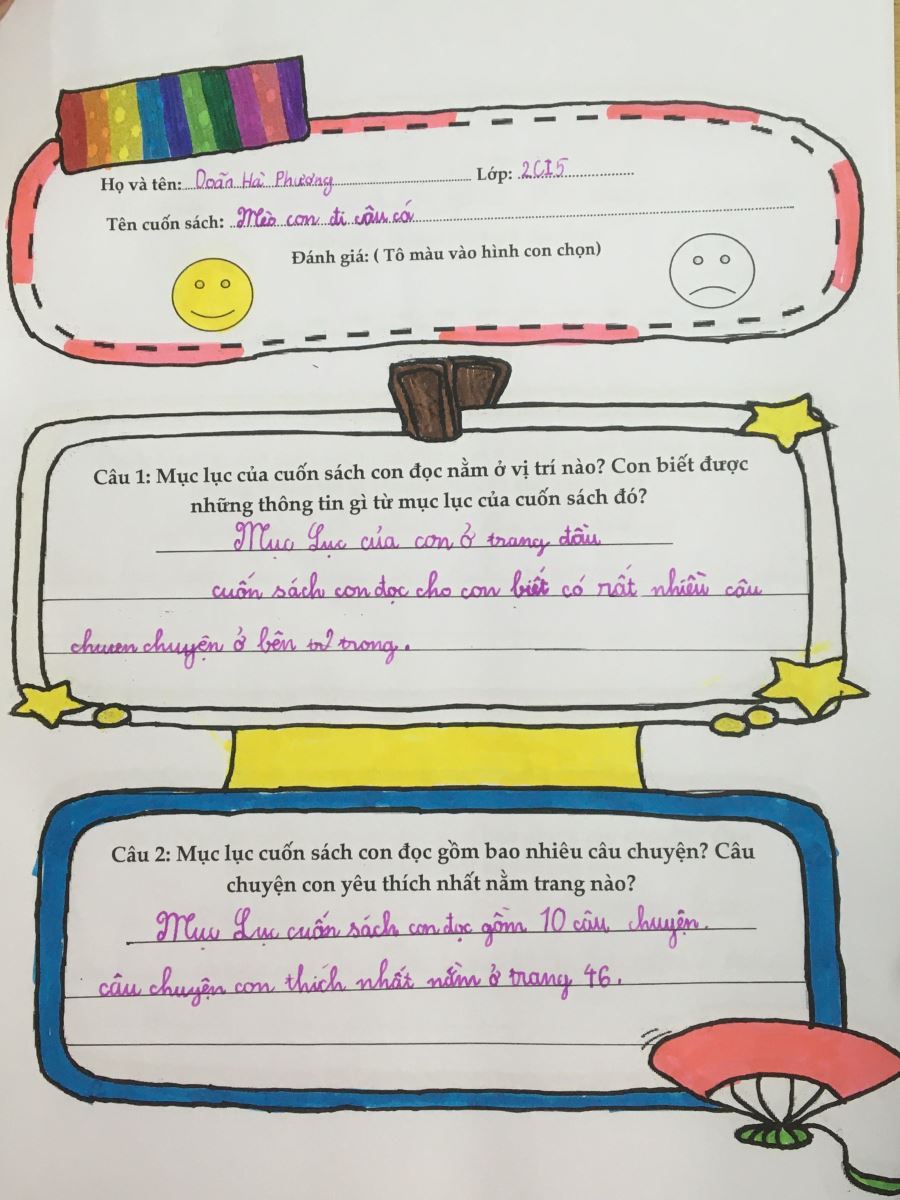 Họ và tên: Doãn Hà Phương Lớp: 2CI5
Tên cuốn sách: Mèo con đi câu cá
Đánh giá: ( Tô màu vào hình con chọn)
Câu 1: Mục lục của cuốn sách con đọc nằm ở vị trí nào? Con biết được
những thông tin gì từ mục lục của cuốn sách đó?
Mục Lục của con ở trang đầu
cuốn sách con đọc cho con biết có rất nhiều câu
chuyện ở bên trong.
Câu 2: Mục lục cuốn sách con đọc gồm bao nhiêu câu chuyện? Câu
chuyện con yêu thích nhất nằm trang nào?
Mục Lục cuốn sách con đọc gồm 10 câu chuyện.
câu chuyện con thích nhất nằm ở trang 46.